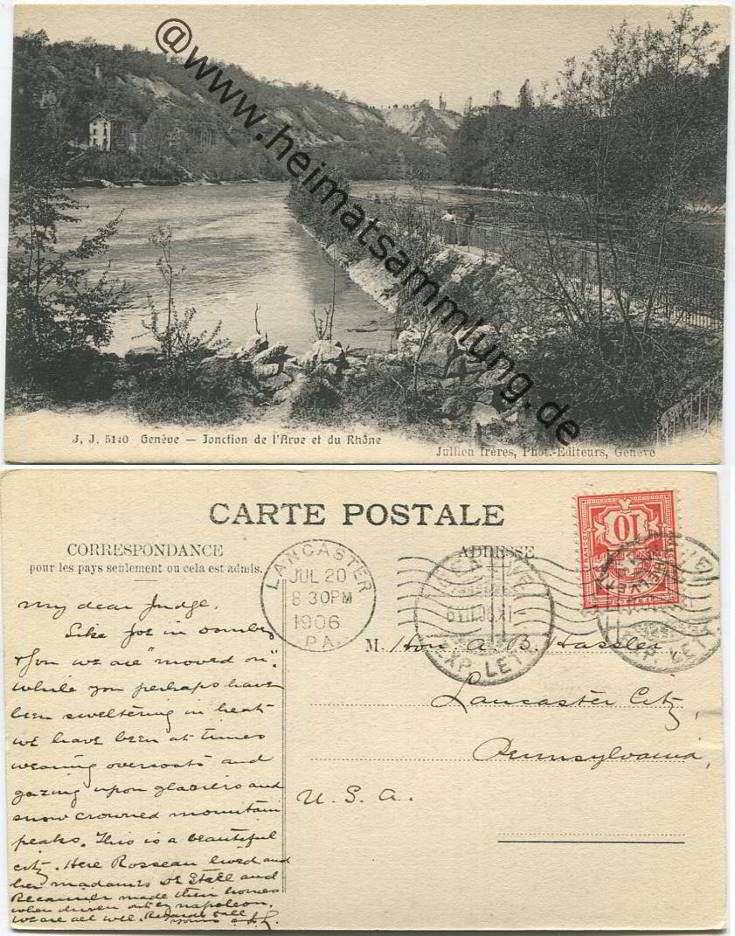 @www.heimatsammlung.de
J. J. 5140 Genève — Jonction de l'Arve et du Rhône
Jullien frères, Phot.-Editeurs, Genève
CARTE POSTALE
CORRESPONDANCE
pour les pays seulement ou cela est admis.
ADRESSE
LANCASTER
JUL 20
8 30PM
1906
PA.
GENÈVE
EXP. LETT.
10
HELVETIA
FRANCO
My dear Judge,
Like Joe in
we are "moved on".
While you perhaps have
been sweltering in heat
we have been at times
wearing overcoats and
gazing upon glaciers and
snow crowned mountain
peaks. This is a beautiful
city. Here Rosseau lived and
her madames de Stall and
Recamier made their homes
when driven out by napoleon.
We are all well. Regards to all
yours
M. Hon. A. B. Hassler
Lancaster City,
Pennsylvania,
U. S. A.